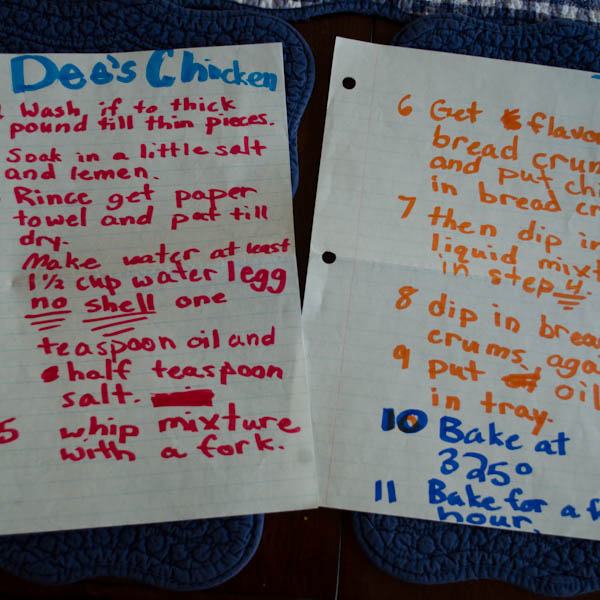 Dee's Chicken
Wash if to thick
pound till thin pieces.
Soak in a little salt
and lemen.
Rince get paper
towel and pat till
dry.
Make water at least
1½ cup water 1egg
no shell one
teaspoon oil and
half teaspoon
salt.
5 whip mixture
with a fork.
6 Get flavo
bread crum
and put chi
in bread cr
7 then dip in
liquid mixt
in step 4.
8 dip in brea
crums aga
9 put oil
in tray.
10 Bake at
325°
11 Bake for a
hour.